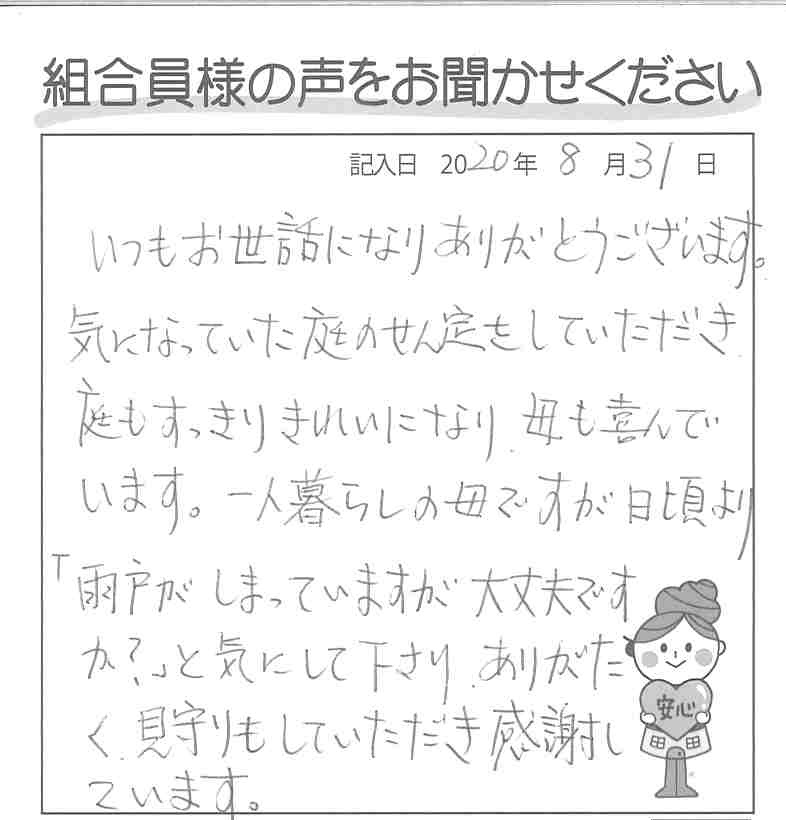 組合員様の声をお聞かせください
記入日 2020年 8月31日
いつもお世話になりありがとうございます。
気になっていた庭のせん定をしていただき
庭もすっきりきれいになり、母も喜んで
います。一人暮らしの母ですが日頃より
「雨戸がしまっていますが大丈夫です
か?」と気にして下さり、ありがた
く、見守りもしていただき感謝し
ています。
安心